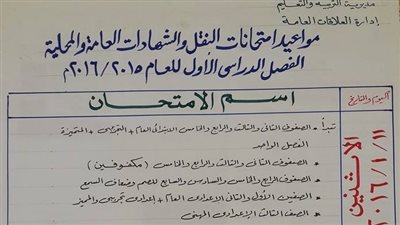 مديرية التربية والتعليم
إدارة العلاقات العامة
مواعيد امتحانات النقل والشهادات العامة والمحلية
الفصل الدراسى الأول للعام ٢٠١٥ / ٢٠١٦م
اليوم والتاريخ
اسم الامتحان
الاثنين
٢٠١٦/١/١١
تبدأ * الصفوف الثانى والثالث والرابع والخامس الابتدائى العام + التجريبى + المتميزة
الفصل الواحد
* الصفوف الثانى والثالث والرابع والخامس ( مكفوفين )
* الصفوف الرابع والخامس والسادس والسابع للصم وضعاف السمع
* الصفين الأول والثانى الإعدادى العام + إعدادى تجريبى والمميز
* الصف الثالث الإعدادى المهنى